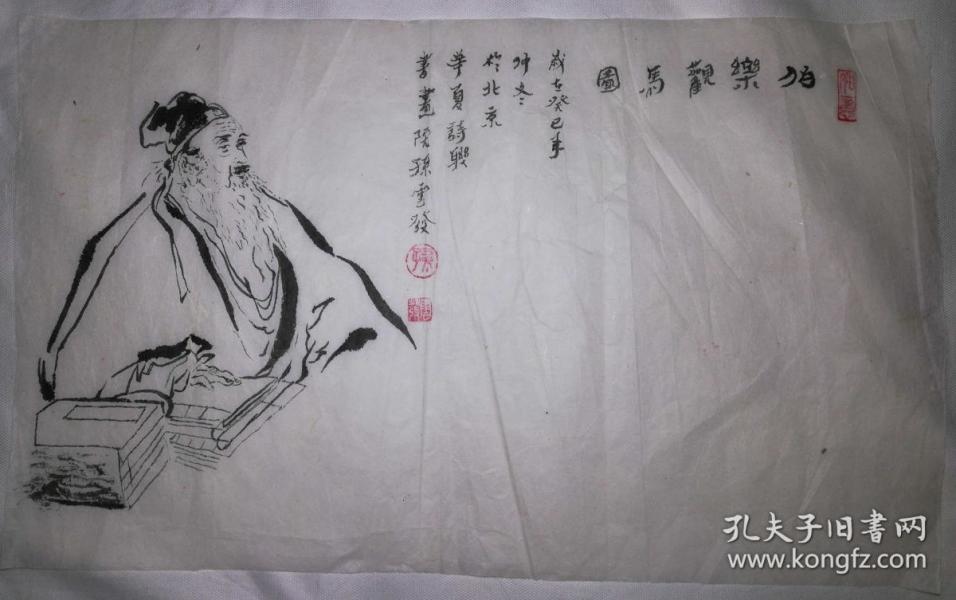 伯樂觀馬圖
歲在癸巳年
仲冬
於北京
華夏詩聯
書畫院孫雲發
孔夫子旧書网
www.kongfz.com